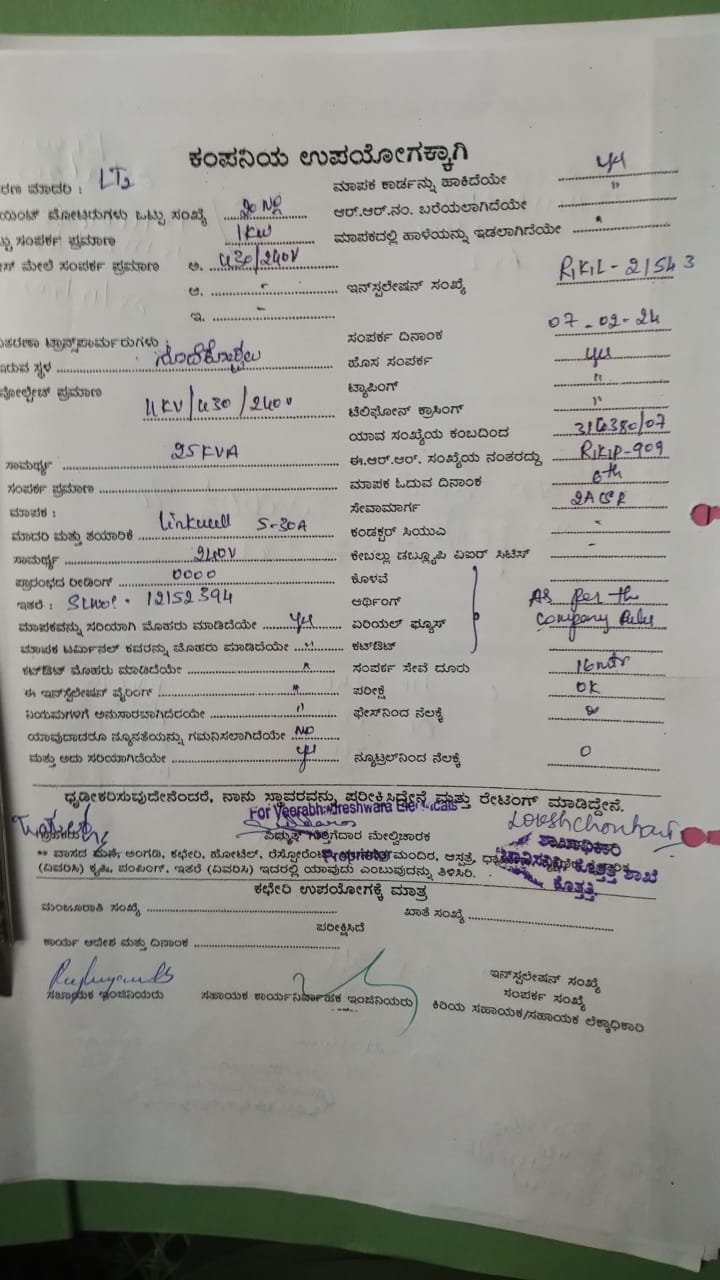 ಕಂಪನಿಯ ಉಪಯೋಗಕ್ಕಾಗಿ
ರಣ ಮಾದರಿ : LT2 ಮಾಪಕ ಕಾರ್ಡನ್ನು ಹಾಕಿದೆಯೇ
ಯಿಂಟ್ ಮೋಟರುಗಳು ಒಟ್ಟು ಸಂಖ್ಯೆ ಆರ್.ಆರ್.ನಂ. ಬರೆಯಲಾಗಿದೆಯೇ "
ಟ್ಟು ಸಂಪರ್ಕ ಪ್ರಮಾಣ 1KW ಮಾಪಕದಲ್ಲಿ ಹಾಳೆಯನ್ನು ಇಡಲಾಗಿದೆಯೇ "
ಸ್ ಮೇಲೆ ಸಂಪರ್ಕ ಪ್ರಮಾಣ ಅ. 430/240V
ಆ. - ಇನ್‌ಸ್ಟಲೇಷನ್ ಸಂಖ್ಯೆ RKL-21543
ಇ. -
ವಿತರಣಾ ಟ್ರಾನ್ಸ್‌ಫಾರ್ಮರುಗಳು ಸಂಪರ್ಕ ದಿನಾಂಕ 07-02-24
ಇರುವ ಸ್ಥಳ ಹೊಸ ಸಂಪರ್ಕ yes
ವೋಲ್ಟೇಜ್ ಪ್ರಮಾಣ ಟ್ಯಾಪಿಂಗ್ "
11KV/430/240V ಟೆಲಿಫೋನ್ ಕ್ರಾಸಿಂಗ್ "
ಯಾವ ಸಂಖ್ಯೆಯ ಕಂಬದಿಂದ
ಸಾಮರ್ಥ್ಯ 25KVA ಈ.ಆರ್.ಆರ್. ಸಂಖ್ಯೆಯ ನಂತರದ್ದು RKP-909
ಸಂಪರ್ಕ ಪ್ರಮಾಣ ಮಾಪಕ ಓದುವ ದಿನಾಂಕ
ಮಾಪಕ : ಸೇವಾಮಾರ್ಗ
ಮಾದರಿ ಮತ್ತು ತಯಾರಿಕೆ Linkwell 5-30A ಕಂಡಕ್ಟರ್ ಸಿಯುಎ -
ಸಾಮರ್ಥ್ಯ 240V ಕೇಬಲ್ಲು ಡಬ್ಲ್ಯೂಪಿ ವಿಐರ್ ಸಿಟಿಸ್ -
ಪ್ರಾರಂಭದ ರೀಡಿಂಗ್ 0000 ಕೊಳವೆ
ಇತರೆ : SLNO: 12152394 ಅರ್ಥಿಂಗ್ As per the
ಮಾಪಕವನ್ನು ಸರಿಯಾಗಿ ಮೊಹರು ಮಾಡಿದೆಯೇ yes ಏರಿಯಲ್ ಫ್ಯೂಸ್ Company Rules
ಮಾಪಕ ಟರ್ಮಿನಲ್ ಕವರನ್ನು ಮೊಹರು ಮಾಡಿದೆಯೇ " ಕಟ್‌ಔಟ್
ಕಟ್‌ಔಟ್ ಮೊಹರು ಮಾಡಿದೆಯೇ " ಸಂಪರ್ಕ ಸೇವೆ ದೂರು 16mtr
ಈ ಇನ್‌ಸ್ಟಲೇಷನ್ ವೈರಿಂಗ್ " ಪರೀಕ್ಷೆ OK
ನಿಯಮಗಳಿಗೆ ಅನುಸಾರವಾಗಿದೆರಯೇ " ಫೇಸ್‌ನಿಂದ ನೆಲಕ್ಕೆ
ಯಾವುದಾದರೂ ನ್ಯೂನತೆಯನ್ನು ಗಮನಿಸಲಾಗಿದೆಯೇ NO
ಮತ್ತು ಅದು ಸರಿಯಾಗಿದೆಯೇ ನ್ಯೂಟ್ರಲ್‌ನಿಂದ ನೆಲಕ್ಕೆ 0
ಧೃಡೀಕರಿಸುವುದೇನೆಂದರೆ, ನಾನು ಸ್ಥಾವರವನ್ನು ಪರೀಕ್ಷಿಸಿದ್ದೇನೆ ಮತ್ತು ರೇಟಿಂಗ್ ಮಾಡಿದ್ದೇನೆ.
For Veerabhadreshwara Electricals
ವಿದ್ಯುತ್ ಗುತ್ತಿಗೆದಾರ ಮೇಲ್ವಿಚಾರಕ ಶಾಖಾಧಿಕಾರಿ
** ವಾಸದ ಮನೆ, ಅಂಗಡಿ, ಕಛೇರಿ, ಹೋಟೆಲ್, ರೆಸ್ಟೋರೆಂಟ್ Proprietor ಮಂದಿರ, ಆಸ್ಪತ್ರೆ,
(ವಿವರಿಸಿ) ಕೃಷಿ, ಪಂಪಿಂಗ್, ಇತರೆ (ವಿವರಿಸಿ) ಇದರಲ್ಲಿ ಯಾವುದು ಎಂಬುವುದನ್ನು ತಿಳಿಸಿರಿ. ಕೊತ್ತತ್ತಿ ಶಾಖೆ
ಕೊತ್ತತ್ತಿ
ಕಛೇರಿ ಉಪಯೋಗಕ್ಕೆ ಮಾತ್ರ
ಮಂಜೂರಾತಿ ಸಂಖ್ಯೆ ಖಾತೆ ಸಂಖ್ಯೆ
ಪರೀಕ್ಷಿಸಿದೆ
ಕಾರ್ಯ ಆದೇಶ ಮತ್ತು ದಿನಾಂಕ
ಇನ್‌ಸ್ಟಲೇಷನ್ ಸಂಖ್ಯೆ
ಸಂಪರ್ಕ ಸಂಖ್ಯೆ
ಸಹಾಯಕ ಇಂಜಿನಿಯರು ಸಹಾಯಕ ಕಾರ್ಯನಿರ್ವಾಹಕ ಇಂಜಿನಿಯರು ಕಿರಿಯ ಸಹಾಯಕ/ಸಹಾಯಕ ಲೆಕ್ಕಾಧಿಕಾರಿ